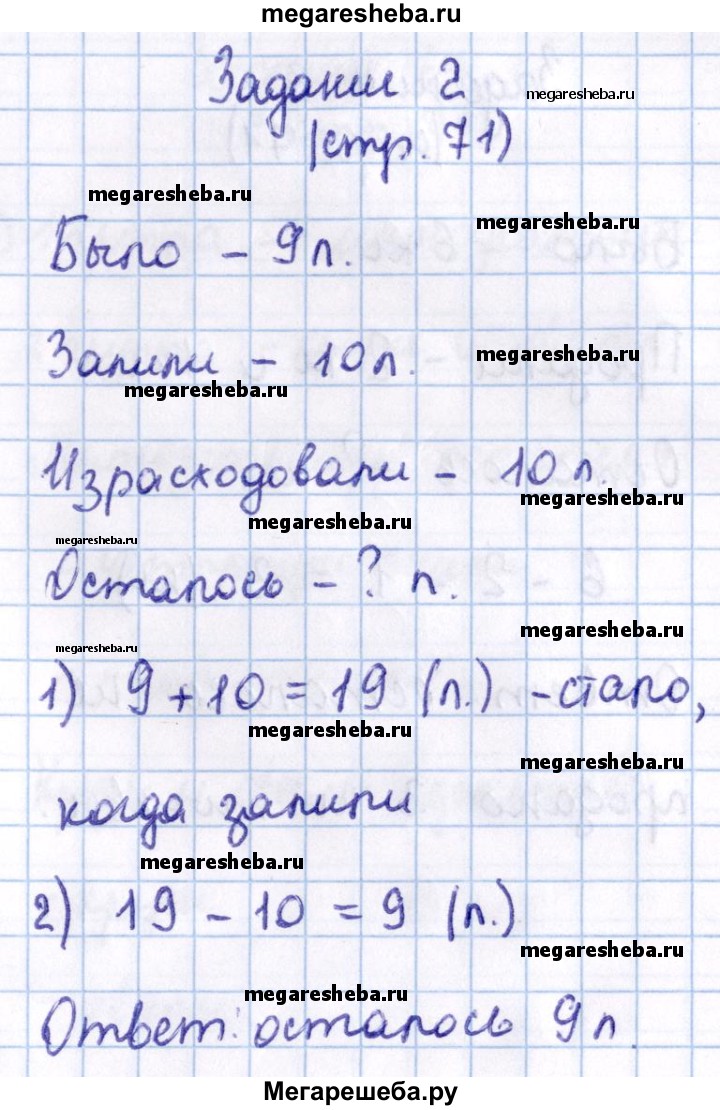 megaresheba.ru
Задание 2
megaresheba.ru
(стр. 71)
megaresheba.ru
megaresheba.ru
Было – 9 л.
Залили – 10 л.
megaresheba.ru
megaresheba.ru
Израсходовали – 10 л.
megaresheba.ru
megaresheba.ru
megaresheba.ru
Осталось – ? л.
megaresheba.ru
megaresheba.ru
1) 9 + 10 = 19 (л.) – стало,
megaresheba.ru
megaresheba.ru
когда залили
megaresheba.ru
2) 19 – 10 = 9 (л.)
megaresheba.ru
megaresheba.ru
Ответ: осталось 9 л.
Мегарешеба.ру